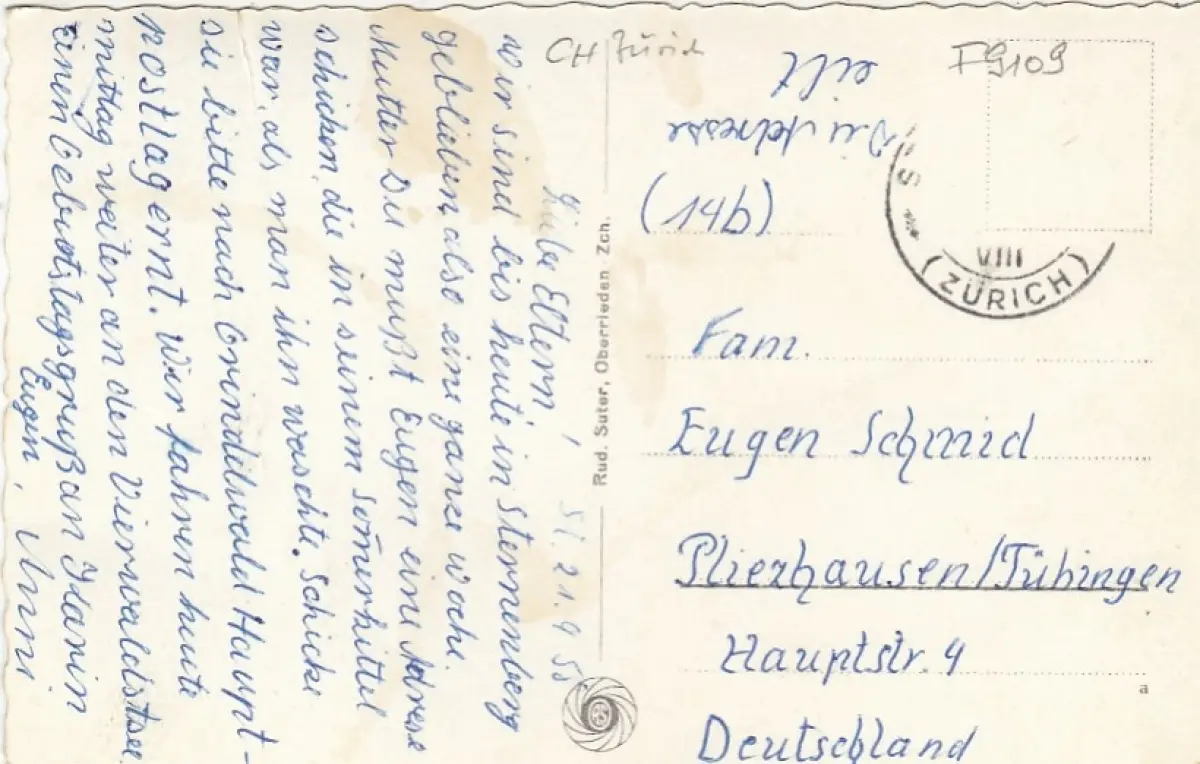 Liebe Eltern!
St. 21.9.55
wir sind bis heute in Sternenberg
geblieben also eine ganze Woche.
Mutter Du mußt Eugen eine Adresse
schicken, die in seinem Som̄erkittel
war, als man ihn waschte. Schicke
sie bitte nach Grindelwald Haupt-
postlagernt. Wir fahren heute
mittag weiter an den Vierwaldstsee.
Einen Gebutstagsgruß an Karin
Eugen, Anni
Rud. Suter, Oberrieden Zch.
CH Zürich
F9109
Die Adresse
eilt
(14b)
VIII
(ZÜRICH)
Fam.
Eugen Schmid
Pliezhausen/Tübingen
Hauptstr. 4
Deutschland
a